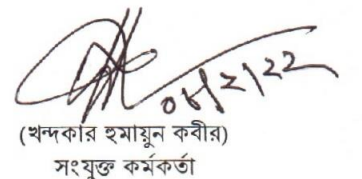 ০৮/২/২২
(খন্দকার হুমায়ুন কবীর)
সংযুক্ত কর্মকর্তা